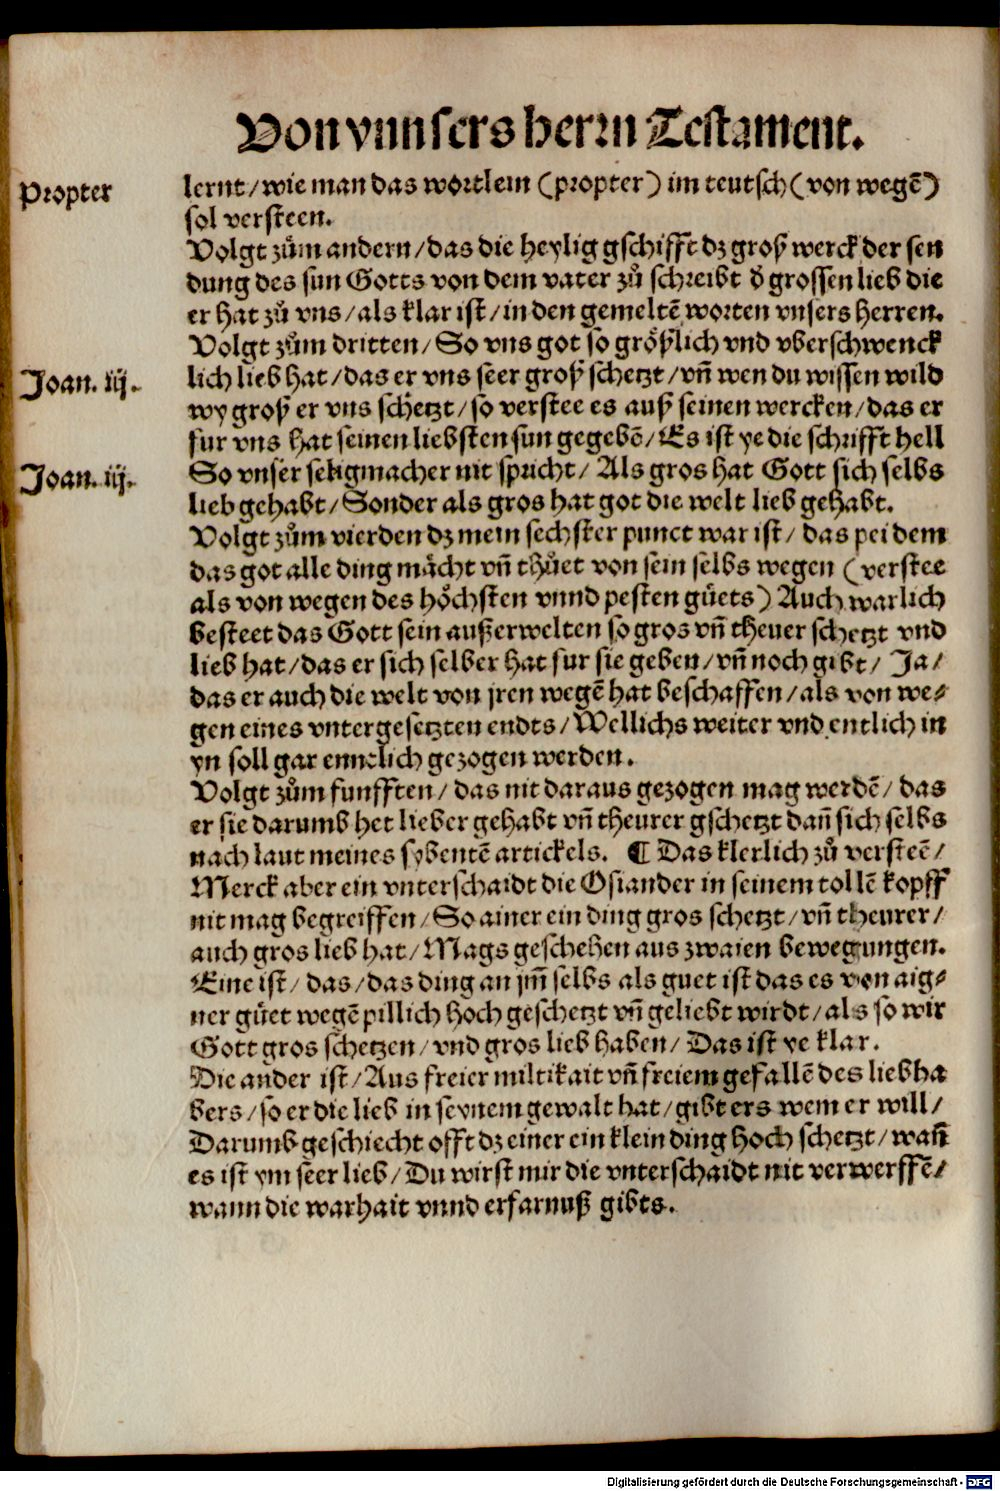 Von vnnsers herrn Testament.
Propter
lernt/wie man das wortlein (propter) im teutsch (von wegē)
sol versteen.
Volgt zům andern/das die heylig gschifft dz groß werck der sen
dung des sun Gotts von dem vater zů schreibt ď grossen lieb die
er hat zů vns/als klar ist/in den gemeltē worten vnsers herren.
Volgt zům dritten/So vns got so größlich vnd vberschwenck
Joan. iij.
lich lieb hat/das er vns seer groß schetzt/vñ wen du wissen wild
wy groß er vns schetzt/so verstee es auß seinen wercken/das er
fur vns hat seinen liebsten sun gegebē/Es ist ye die schrifft hell
Joan. iij.
So vnser seligmacher nit spricht/Als gros hat Gott sich selbs
lieb gehabt/Sonder als gros hat got die welt lieb gehabt.
Volgt zům vierden dz mein sechster punct war ist/das pei dem
das got alle ding mächt vñ thůet von sein selbs wegen (verstee
als von wegen des höchsten vnnd pesten gůets) Auch warlich
besteet das Gott sein außerwelten so gros vñ theuer schetzt vnd
lieb hat/das er sich selber hat fur sie geben/vñ noch gibt/Ja/
das er auch die welt von jren wegē hat beschaffen/als von we⸗
gen eines vntergesetzten endts/Wellichs weiter vnd entlich in
yn soll gar enntlich gezogen werden.
Volgt zům funfften/das nit daraus gezogen mag werdē/das
er sie darumb het lieber gehabt vñ theurer gschetzt dañ sich selbs
nach laut meines sybentē artickels. ¶ Das klerlich zů versteē/
Merck aber ein vnterschaidt die Osiander in seinem tollē kopff
nit mag begreiffen/So ainer ein ding gros schetzt/vñ theurer/
auch gros lieb hat/Mags geschehen aus zwaien bewegungen.
Eine ist/das/das ding an jm̄ selbs als guet ist das es von aig⸗
ner gůet wegē pillich hoch geschetzt vñ geliebt wirdt/als so wir
Gott gros schetzen/vnd gros lieb haben/Das ist ye klar.
Die ander ist/Aus freier miltikait vñ freiem gefallē des liebha
bers/so er die lieb in seynem gewalt hat/gibt ers wem er will/
Darumb geschiecht offt dz einer ein klein ding hoch schetzt/wañ
es ist ym seer lieb/Du wirst mir die vnterschaidt nit verwerffē/
wann die warhait vnnd erfarnuß gibts.
Digitalisierung gefördert durch die Deutsche Forschungsgemeinschaft - DFG